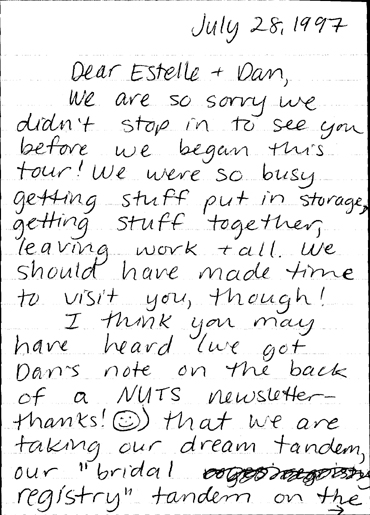 July 28, 1997
Dear Estelle + Dan,
We are so sorry we
didn't stop in to see you
before we began this
tour! We were so busy
getting stuff put in storage,
getting stuff together,
leaving work + all. We
should have made time
to visit you, though!
I think you may
have heard (we got
Dan's note on the back
of a NUTS newsletter—
thanks! ☺) that we are
taking our dream tandem,
our "bridal
registry" tandem on the
→